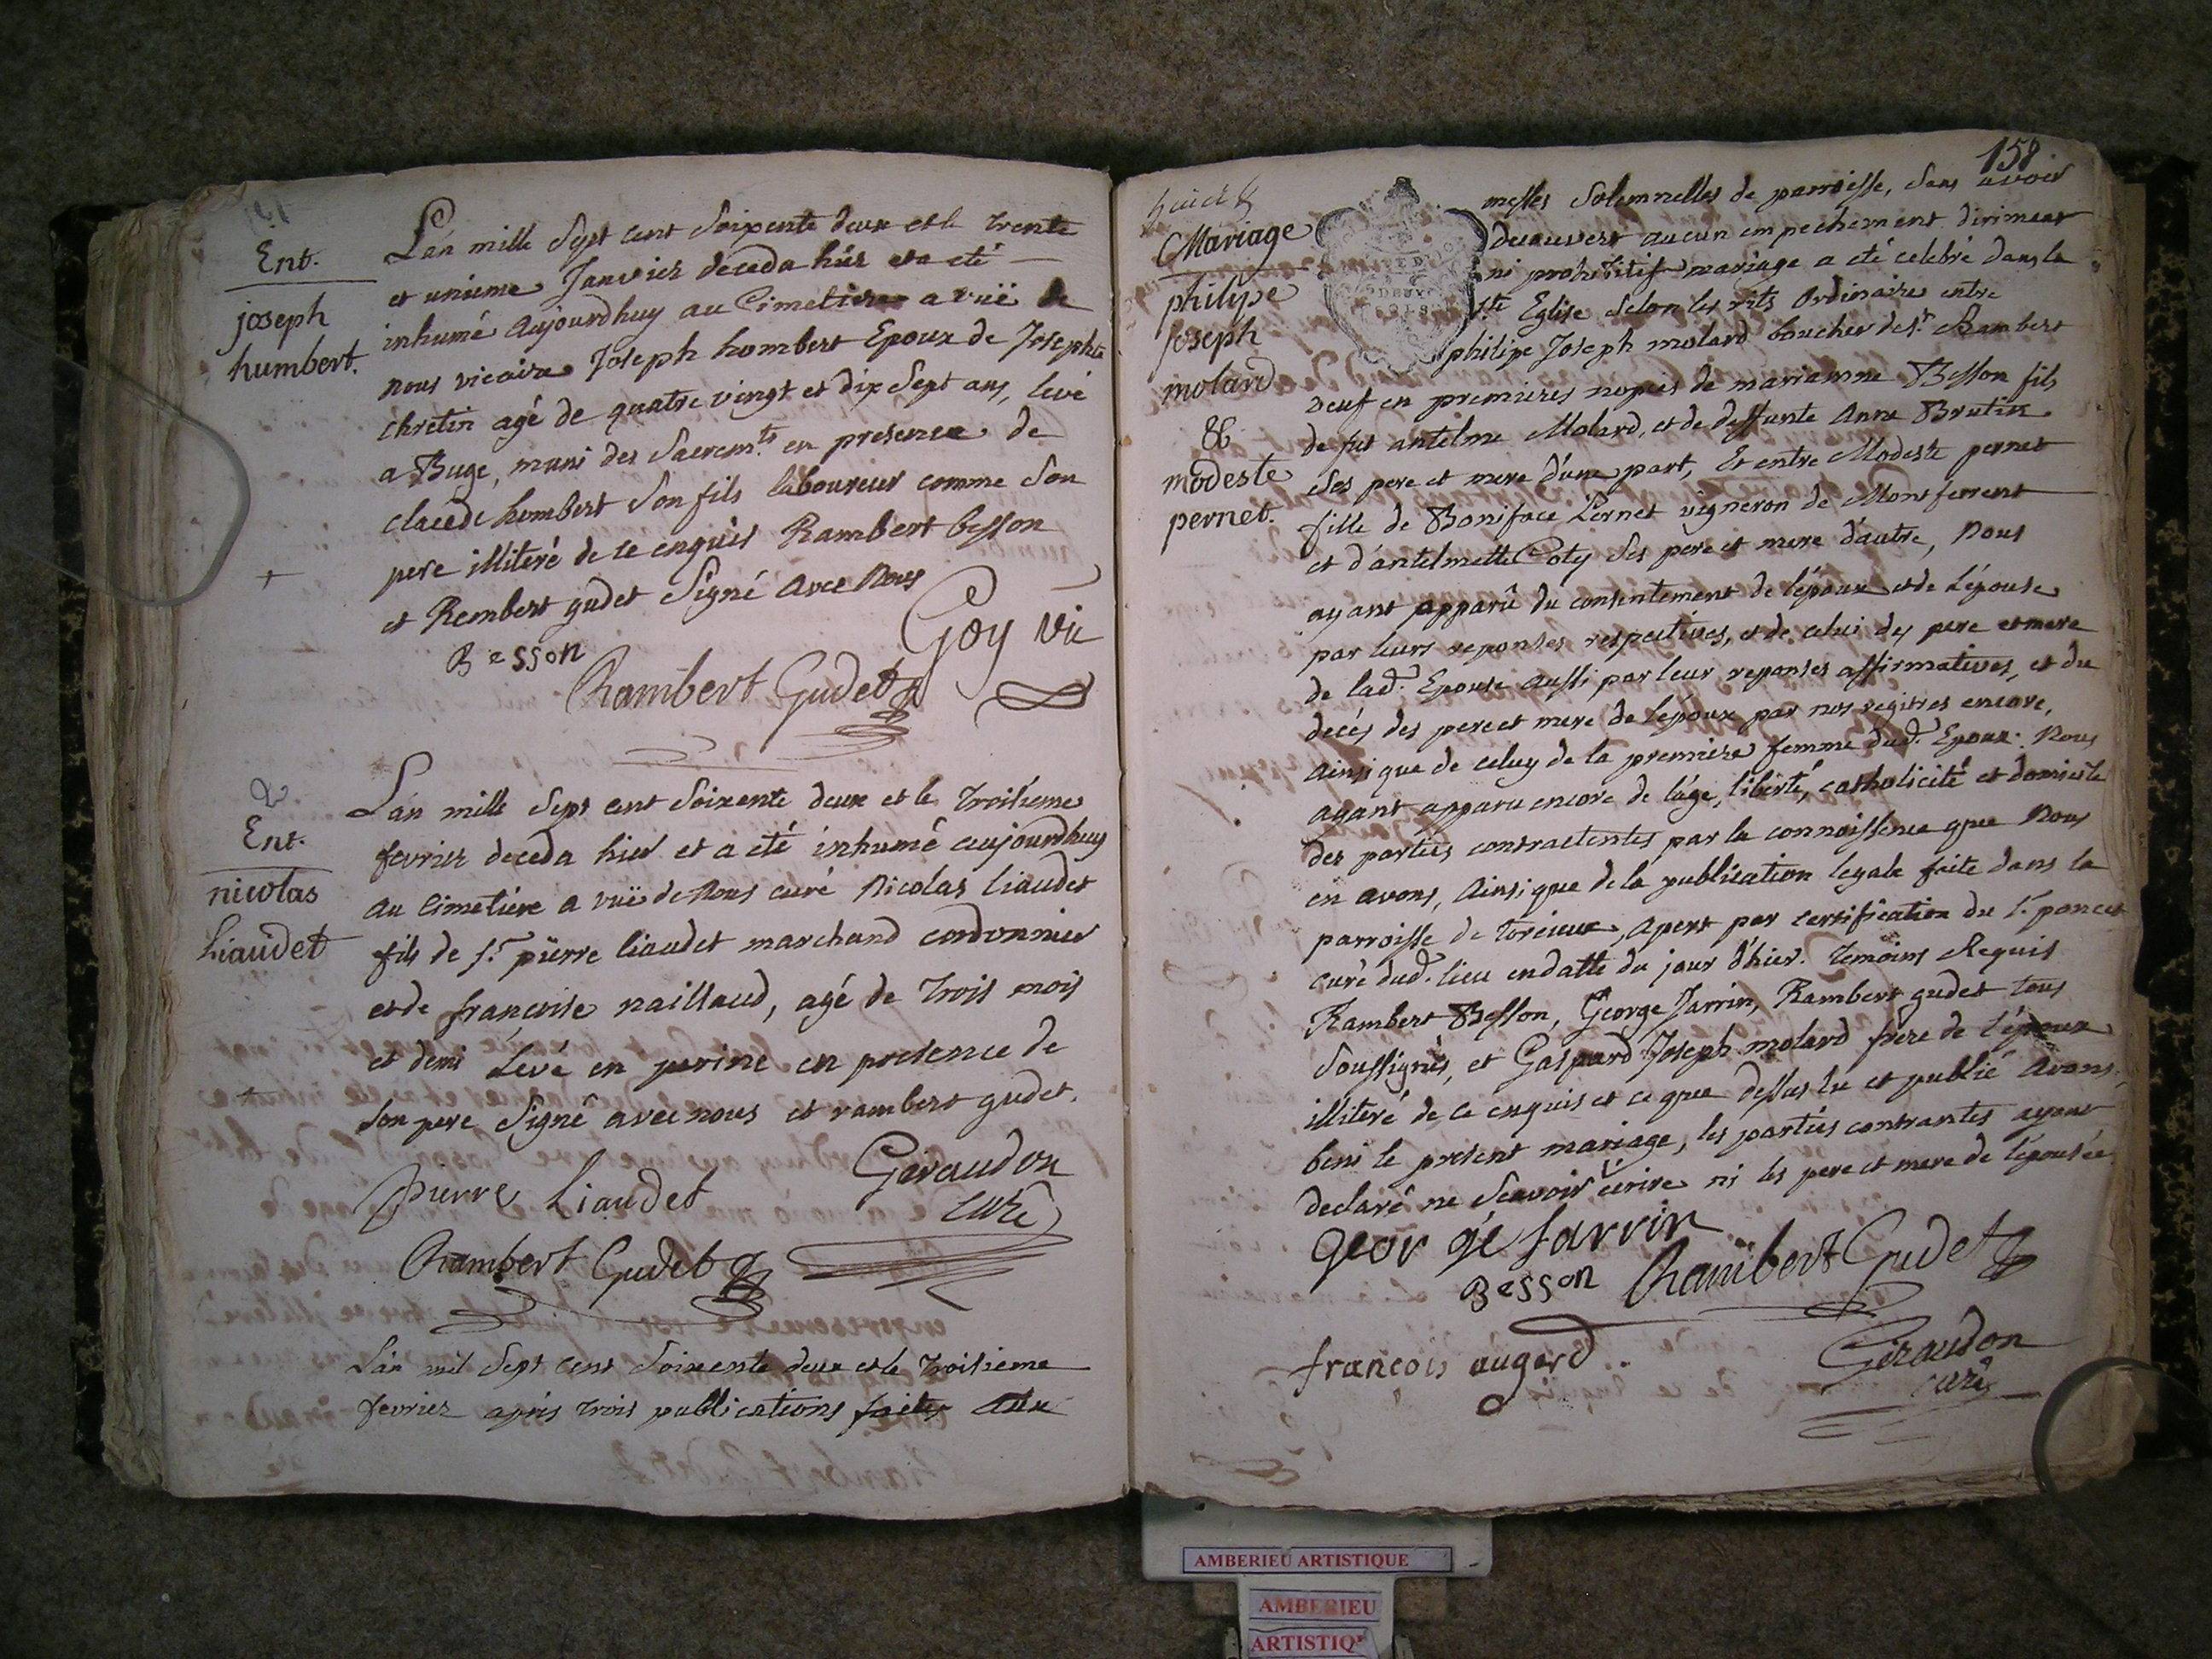 Ent.
joseph
humbert.
L'an mille Sept cent Soixente deux et le trente
et unieme Janvier deceda hier et a eté
inhumé aujourdhuy au Cimetiere a vuë de
nous vicaire Joseph hombert Epoux de Josephte
chretin agé de quatre vingt et dix Sept ans, levé
a Buge, muni des Sacrem.ts en presence de
claude hombert Son fils laboureur comme Son
pere illiteré de ce enquis Rambert besson
et Rembert gudet Signé avec Nous
Besson
Goy vic
Rambert Gudet
Ent.
nicolas
Liaudet
L'an mille Sept cent Soixente deux et le troisieme
fevrier deceda hier et a eté inhumé aujourdhuy
au Cimetiere a vuë de Nous curé Nicolas liaudet
fils de s.r pierre liaudet marchand cordonnier
et de françoise naillaud, agé de trois mois
et demi Levé en jurine en presence de
Son pere Signé avec nous et rambert gudet.
pierre Liaudet
Giraudon
curé
Rambert Gudet
L'an mil Sept cent Soixente deux et le troisieme
fevrier apres trois publications faites aux
158
Mariage
philipe
joseph
molard
&
modeste
pernet.
messes Solemnelles de parroisse, Sans avoir
decouvert aucun empechement dirimant
ni prohibitif mariage a eté celebré dans la
s.te Eglise Selon les rits Ordinaire entre
philipe Joseph molard boucher de s.t Rambert
veuf en premieres nopces de marianne Besson fils
de fut antelme Molard, et de deffunte Anne Brutin
Ses pere et mere d'une part, Et entre Modeste pernet
fille de Boniface Pernet vigneron de Montferrent
et d'antelmette Coty Ses pere et mere d'autre, Nous
ayant apparû du consentement de l'époux et de L'épouse
par leurs reponses respectives, et de celui des pere et mere
de lad.e Epouse aussi par leur reponses affirmatives, et du
decés des pere et mere de l'epoux par nos regitres encore,
ainsi que de celuy de la premiere femme dud.t Epoux. Nous
ayant apparu encore de l'age, liberté, catholicité et domicile
des parties contractentes par la connoissence que Nous
en avons, ainsi que de la publication legale faite dans la
parroisse de torcieux, apert par certification du s.r poncet
curé dud.t lieu en datte du jour d'hier. temoins Requis
Rambert Besson, George Jarrin, Rambert gudet tous
Soussignés, et Gaspard Joseph molard frere de l'époux
illiteré de ce enquis et ce que dessus lu et publié avons
beni le present mariage, les parties contrantes ayant
declaré ne Scavoir écrire ni les pere et mere de l'épousée
george jarrin
Besson
Rambert Gudet
francois augerd.
Giraudon
curé
AMBERIEU ARTISTIQUE
AMBERIEU
ARTISTIQ